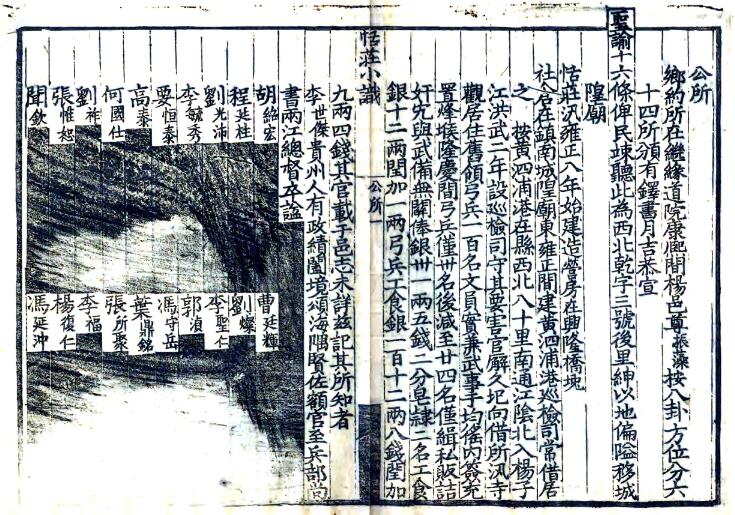 公所
鄉約所在繼緣道院康熙間楊邑尊振藻按八卦方位分六
十四所頒有鐸書月吉恭宣
聖諭十六條俾民竦聽此為西北乾字三號後里紳以地偏隘移城
隍廟
恬莊汛雍正八年始建造營房在興隆橋堍
社倉在鎮南城隍廟東雍正間建黃泗浦港巡檢司常借居
之 按黃泗浦港在縣西北八十里南通江陰北入楊子
江洪武二年設巡檢司守其要害官廨久圮向借所汛寺
觀居住舊領弓兵一百名文員實兼武事手均徭內簽充
置烽堠隆慶間弓兵僅卅名後減至廿四名僅緝私販詰
奸宄與武備無關俸銀卅一兩五錢二分皂隸二名工食
銀十二兩閏加一兩弓兵工食銀一百十二兩八錢閏加
恬莊小識
公所
一
九兩四錢其官載于邑志未詳茲記其所知者
李世傑貴州人有政績闔境頌海隅賢佐額官至兵部尚
書兩江總督卒謚
胡紹宏
曹廷輝
程廷柱
劉燦
劉光沛
李聖仁
李毓秀
郭湞
要恒泰
馮守岳
高泰
葉鼎銘
何國仕
張所聚
劉祚
李福
張惟恕
楊復仁
聞欽
馮延沖